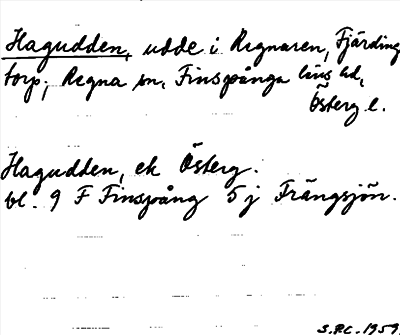 Hagudden, udde i Regnaren, Fjärding
torp, Regna sn, Finspånga läns hd,
Österg. l.
Hagudden, ek Österg.
bl. 9 F Finspång 5 j Trängsjön.
S.P.C. 1959